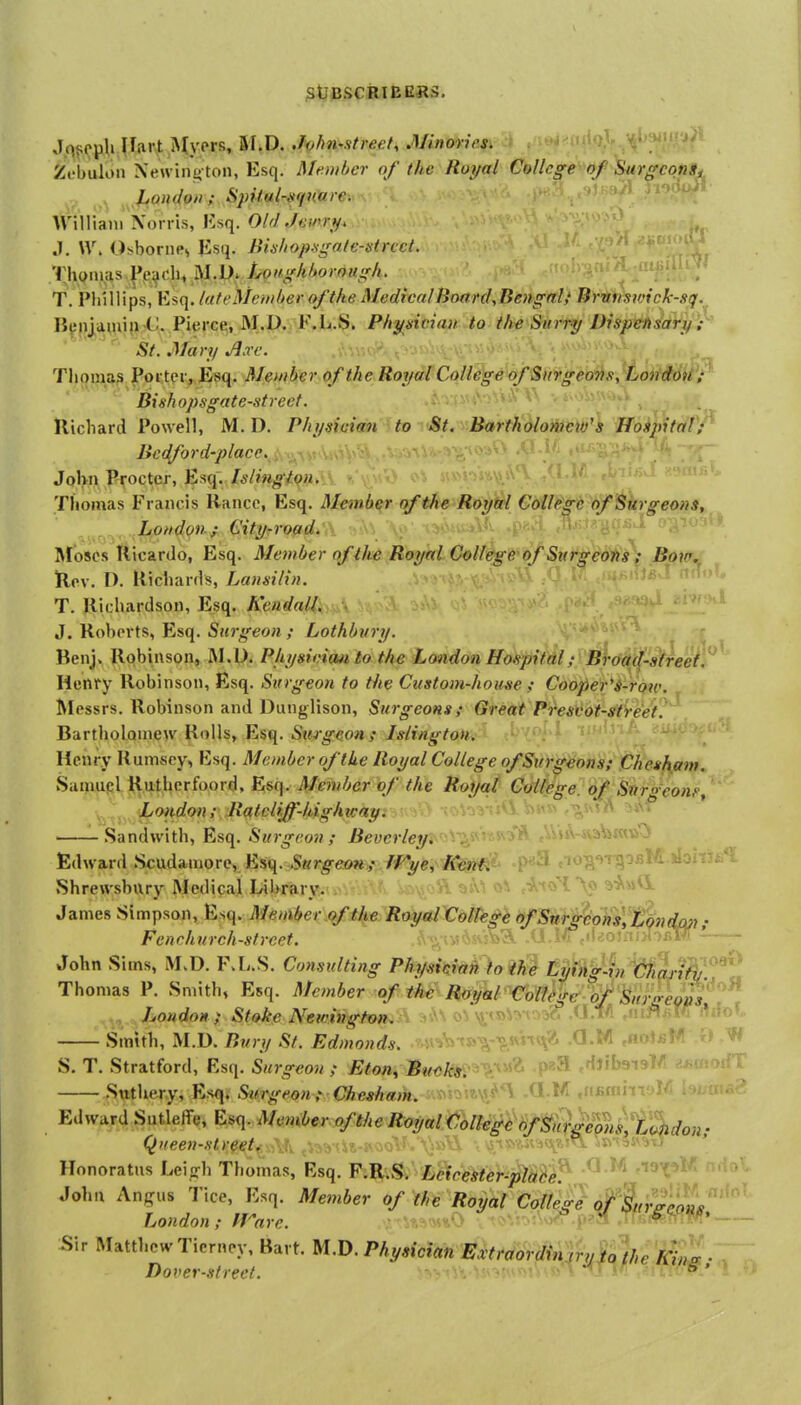 SUBSCRIBERS.
Joseph Hart Myers, M.D. John-street, Minories.
Zebulon Newington, Esq. Member of the Royal College of Surgeons,
London; Spital-square.
William Norris, Esq. Old Jewry.
J. W. Osborne, Esq. Bishopsgate-street.
Thomas Peach, M.D. Loughborough.
T. Phillips, Esq. late Member of the Medical Board, Bengal; Brunswick-sq.
Benjamin C. Pierce, M.D. F.L.S. Physician to the Surry Dispensary;
St. Mary Axe.
Thomas Porter, Esq. Member of the Royal College of Surgeons, London;
Bishopsgate-street.
Richard Powell, M. D. Physician to St. Bartholomew's Hospital;
Bedford-place.
John Procter, Esq. Islington.
Thomas Francis Rance, Esq. Member of the Royal College of Surgeons,
London; City-road.
Moses Ricardo, Esq. Member of the Royal College of Surgeons; Bow.
Rev. D. Richards, Lansilin.
T. Richardson, Esq. Kendall.
J. Roberts, Esq. Surgeon; Lothbury.
Benj. Robinson, M.D. Physician to the London Hospital; Broad-street.
Henry Robinson, Esq. Surgeon to the Custom-house; Cooper's-row.
Messrs. Robinson and Dunglison, Surgeons; Great Prescot-street.
Bartholomew Rolls, Esq. Surgeon; Islington.
Henry Rumsey, Esq. Member of the Royal College of Surgeons; Chesham.
Samuel Rutherfoord, Esq. Member of the Royal College of Surgeons,
London; Ratcliff-highway.
—— Sandwith, Esq. Surgeon; Beverley.
Edward Scudamore, Esq. Surgeon; Wye, Kent.
Shrewsbury Medical Library.
James Simpson, Esq. Member of the Royal College of Surgeons, London;
Fenchurch-street.
John Sims, M.D. F.L.S. Consulting Physician to the Lying-in Charity.
Thomas P. Smith, Esq. Member of the Royal College of Surgeons,
London; Stoke Newington.
—— Smith, M.D. Bury St. Edmonds.
S. T. Stratford, Esq. Surgeon; Eton, Bucks.
—— Suthery, Esq. Surgeon; Chesham.
Edward Sutleffe, Esq. Member of the Royal College of Surgeons, London;
Queen-street.
Honoratus Leigh Thomas, Esq. F.R.S. Leicester-place.
John Angus Tice, Esq. Member of the Royal College of Surgeons,
London; Ware.
Sir Matthew Tierney, Bart. M.D. Physician Extraordinary to the King;
Dover-street.